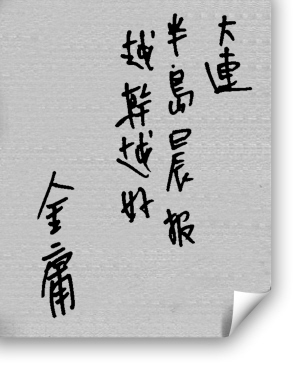 大連
半島晨报
越幹越好
金庸